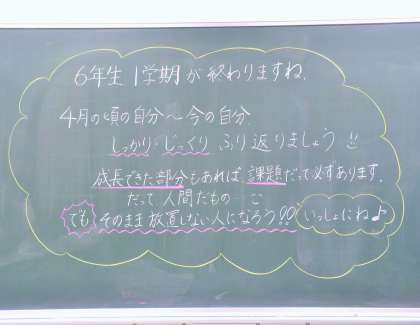 6年生 1学期が終わりますね.
4月の頃の自分〜今の自分
しっかり・じっくり ふり返りましょう!!
成長できた部分もあれば、課題だって必ずあります.
だって人間だもの
でも そのまま放置しない人になろう!! いっしょにね♪